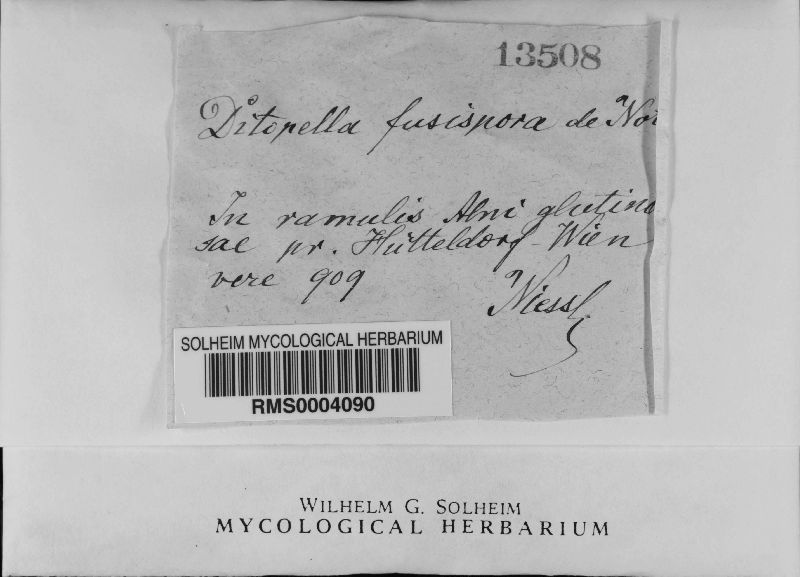 13508
Ditopella fusispora de Not
In ramulis Alni glutino
sae pr. Hütteldorf-Wien
vere 909
Niessl
SOLHEIM MYCOLOGICAL HERBARIUM
RMS0004090
WILHELM G. SOLHEIM
MYCOLOGICAL HERBARIUM